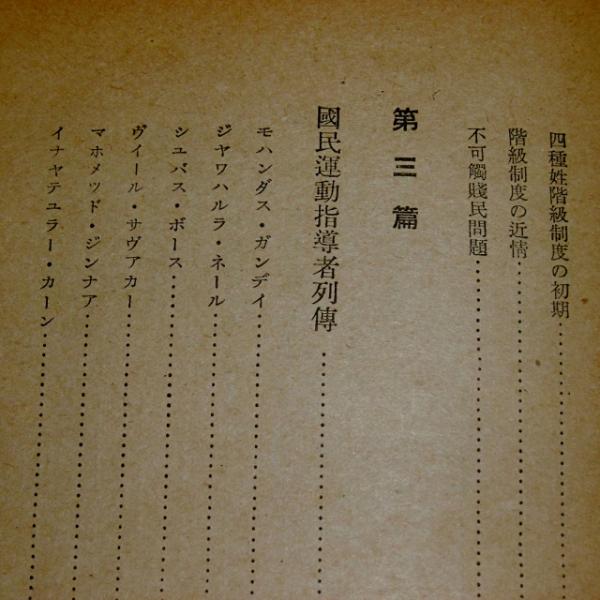 四種姓階級制度の初期
階級制度の近情
不可觸賤民問題
第三篇
國民運動指導者列傳
モハンダス・ガンデイ
ジヤワハルラ・ネール
シユバス・ボース
ヴイール・サヴアカー
マホメツド・ジンナア
イナヤテユラー・カーン